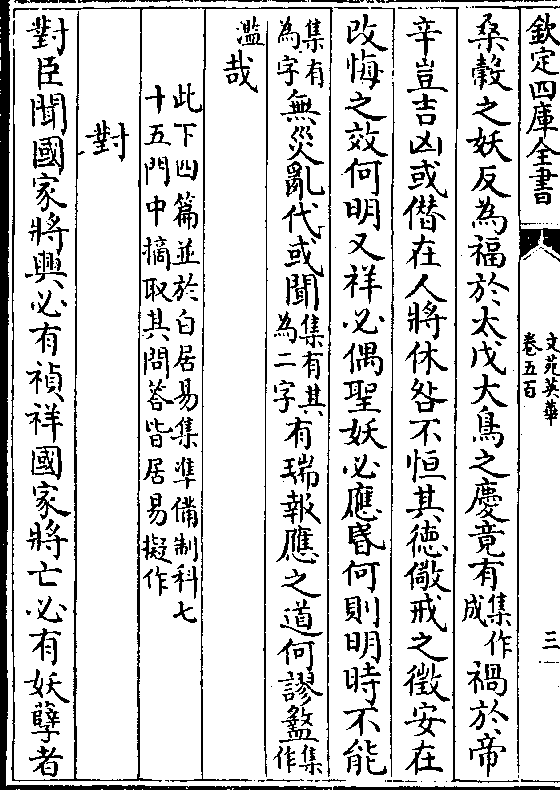 欽定四庫全書
文苑英華
卷五百
三
桑榖之妖反為福於太戊大鳥之慶竟有集作成禍於帝
辛豈吉凶或僭在人將休咎不恒其徳儆戒之徵安在
改悔之效何明又祥必偶聖妖必應昏何則明時不能
集有為字無災亂代或聞集有其為二字有瑞報應之道何謬盭集作
濫哉
此下四篇並於白居易集凖備制科七
十五門中摘取其問荅皆居易擬作
對
對臣聞國家將興必有禎祥國家將亡必有妖孽者